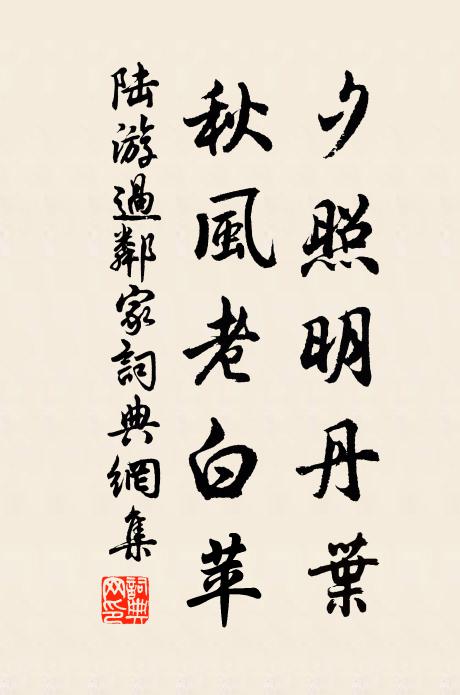 夕照明丹葉
秋風老白苹
陸游過鄰家詞典網集
詞典網印